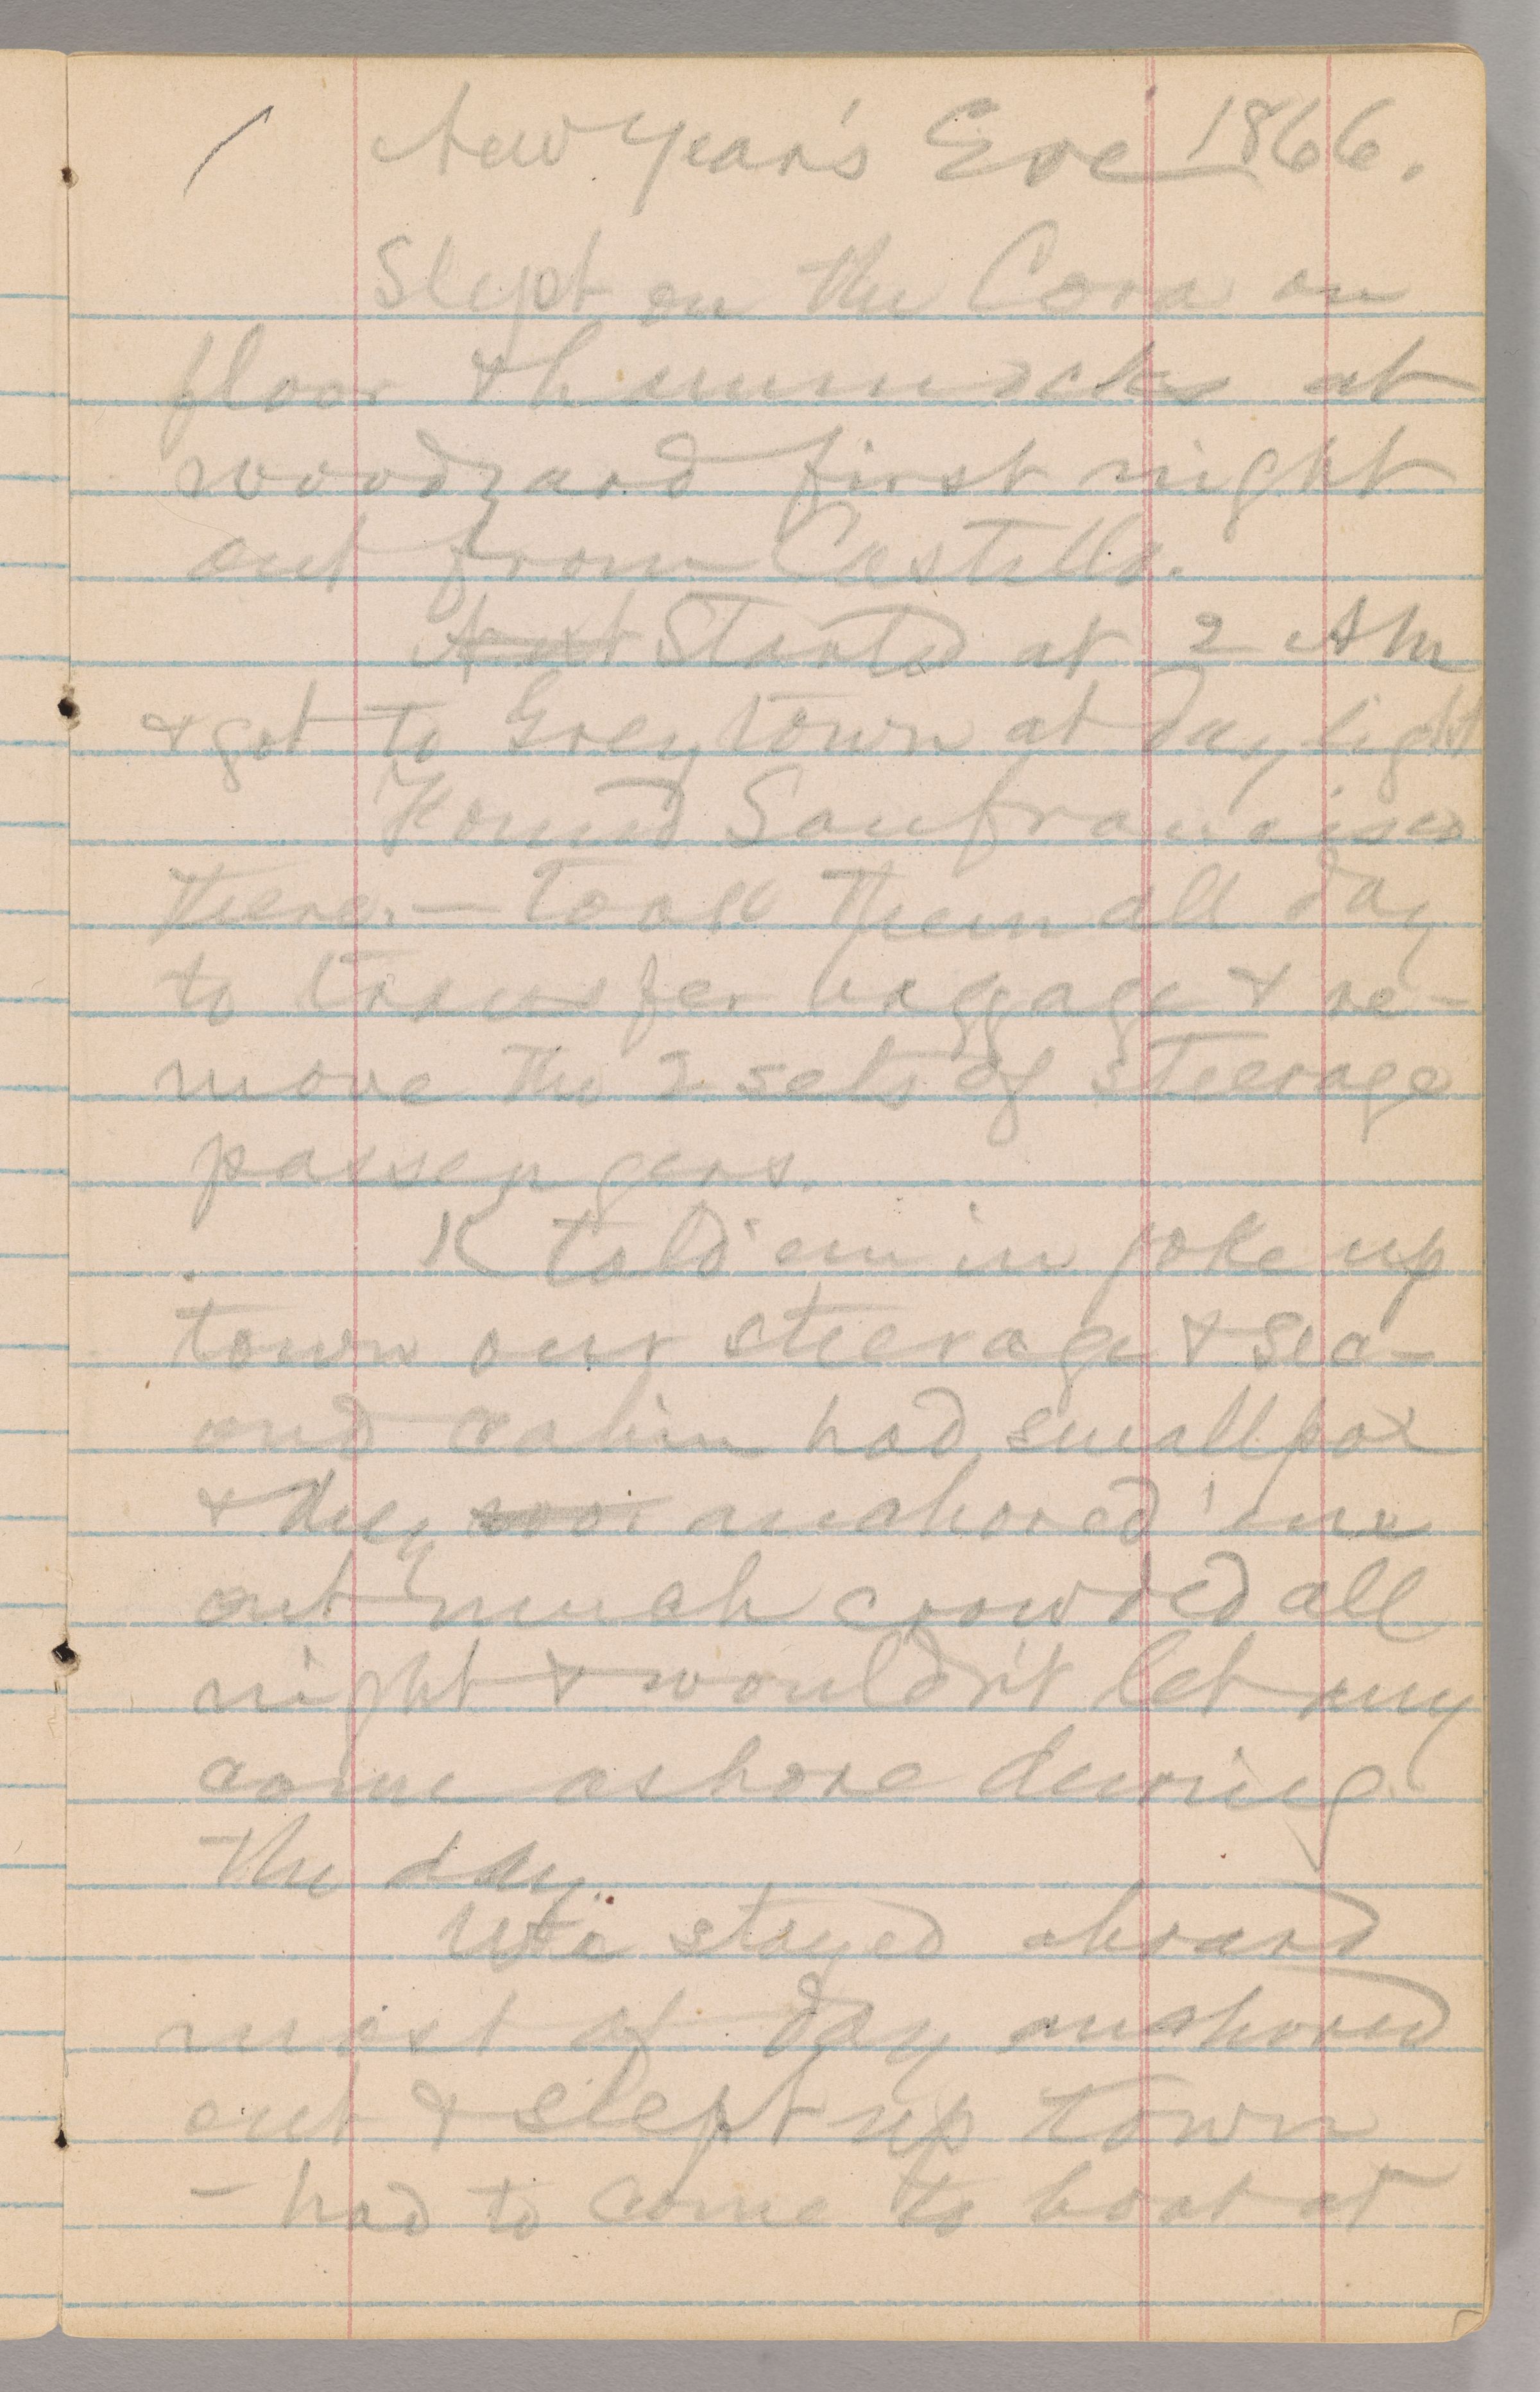 New Year's Eve 1866.
Slept on the Cora on
floor & hammocks at
woodyard first night
out from Castillo.
Next Started at 2 AM
& got to Greytown at daylight
Found San francisco
there. — took them all day
to transfer baggage & re-
move the 2 sets of steerage
passengers.
K told em in joke up
town our steerage & sec-
ond cabin had smallpox
& they anchored 'em
out much crowded all
night & wouldn't let any
come ashore during
the day.
We stayed aboard
most of day anchored
out & slept up town
— had to come to boat at